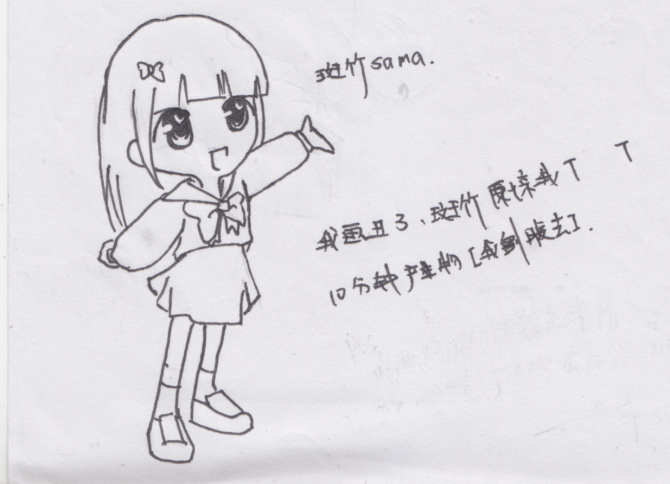 斑竹sama.
我画丑了、斑竹原谅我T T
10分钟产物[我剁腚去].